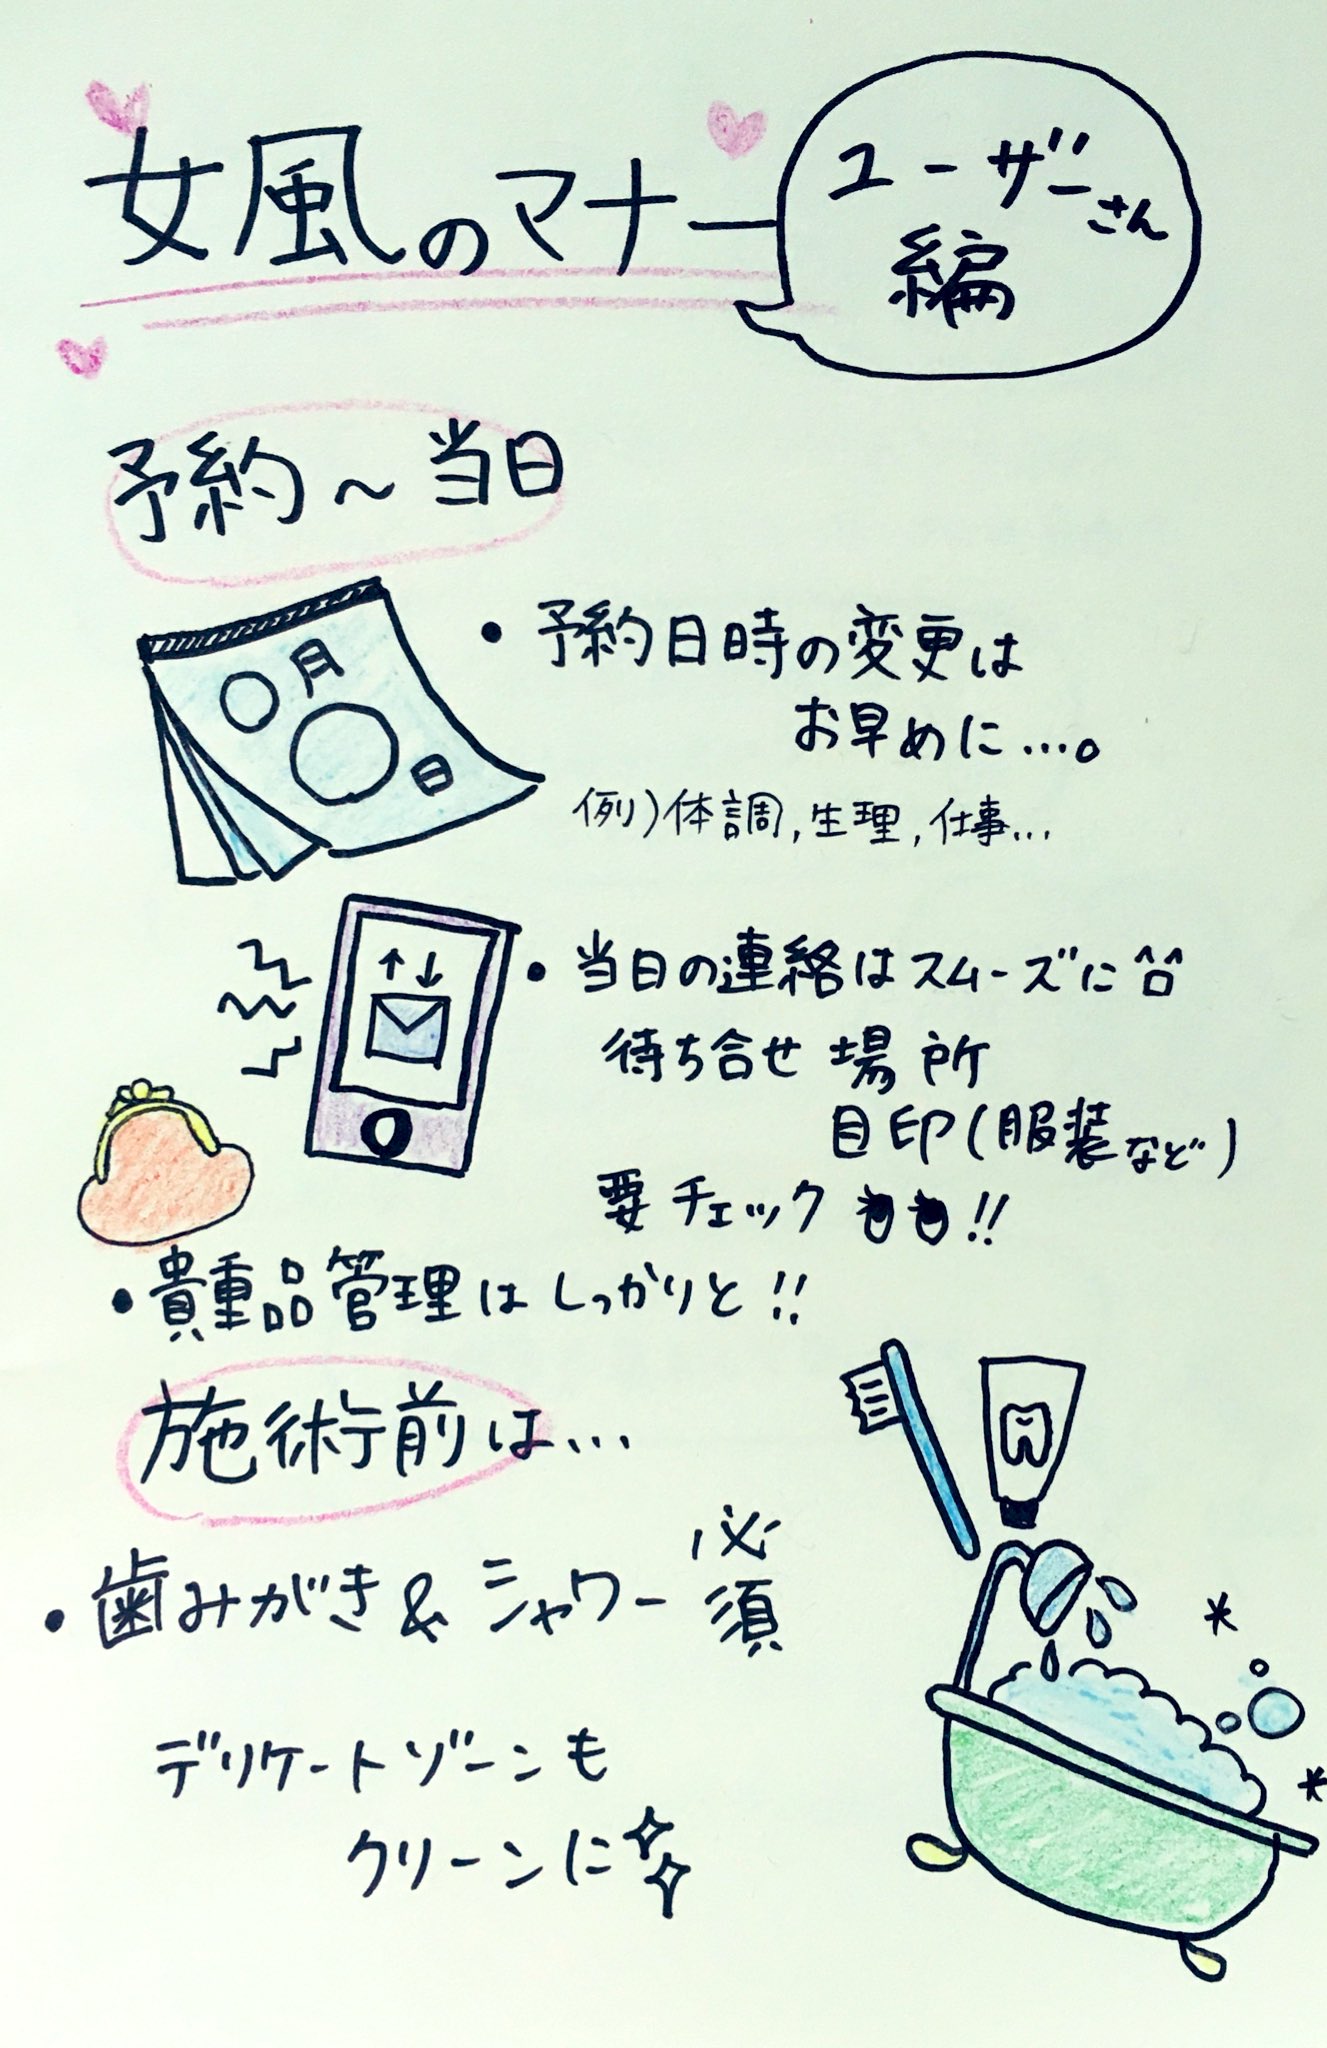 女風のマナー
ユーザーさん
編
予約～当日
○月
○日
・予約日時の変更は
お早めに…。
例)体調,生理,仕事…
・当日の連絡はスムーズに
待ち合せ場所
目印(服装など)
要チェック!!
・貴重品管理はしっかりと!!
施術前は…
・歯みがき&シャワー必須
デリケートゾーンも
クリーンに